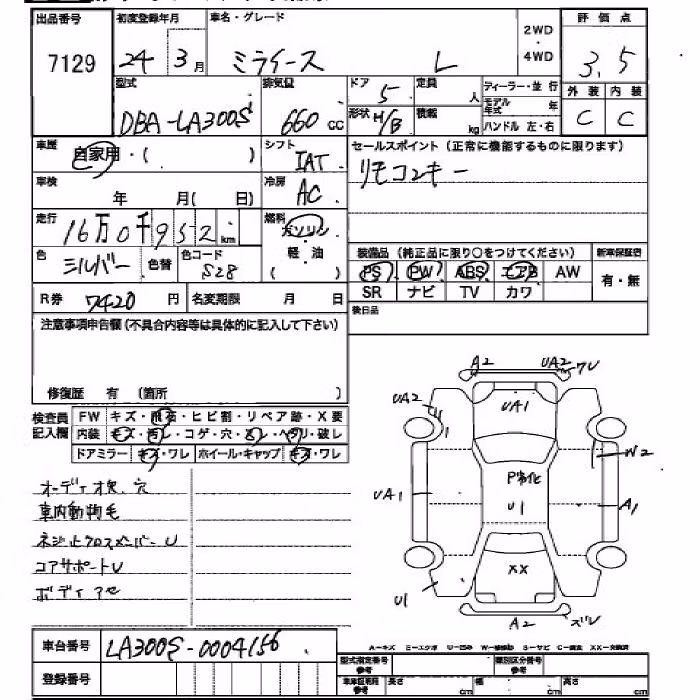 出品番号 初度登録年月 車名・グレード 2WD・4WD 評価点
7129 24 3月 ミライース L 3.5
型式 排気量 ドア 5 定員 人 ディーラー・並行 外装 内装
DBA-LA300S 660cc 形状 H/B 積載 kg モデル年式 年 C C
ハンドル 左・右
車歴 自家用・( ) シフト IAT セールスポイント (正常に機能するものに限ります)
車検 年 月( 日) 冷房 AC リモコンキー
走行 16万0千952km 燃料 ガソリン 軽・油 ( )
色 シルバー 色替 色コード S28 装備品 (純正品に限り○をつけてください) 新車保証書
PS PW ABS エアB AW 有・無
R券 7420円 名変期限 月 日 SR ナビ TV カワ
注意事項申告欄(不具合内容等は具体的に記入して下さい) 後日品
修復歴 有 (箇所 )
検査員記入欄 FW キズ・飛石・ヒビ割・リペア跡・X要
内装 キズ・汚レ・コゲ・穴・スレ・ヘタリ・破レ
ドアミラー キズ・ワレ ホイール・キャップ キズ・ワレ
オーディオ欠、穴
車内動物毛
ネジ止クロスメンバーU
コアサポートU
ボディアセ
A2 UA2 ワレ
UA2 UA1
W2
P劣化
UA1 U1 A1
XX
U1 A2 ズレ
車台番号 LA300S-0004156
A-キズ E-エクボ U-凹み W-補修跡 S-サビ C-腐食 XX-交換済
登録番号 型式指定番号参考 類別区分番号参考
車車証明用参考 長さ cm 幅 cm 高さ cm